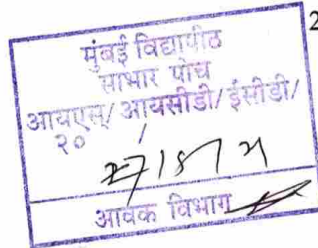 2
मुंबई विद्यापीठ
साभार पोच
आयएस/ आयसीडी/ ईसीडी/
२० /
आवक विभाग